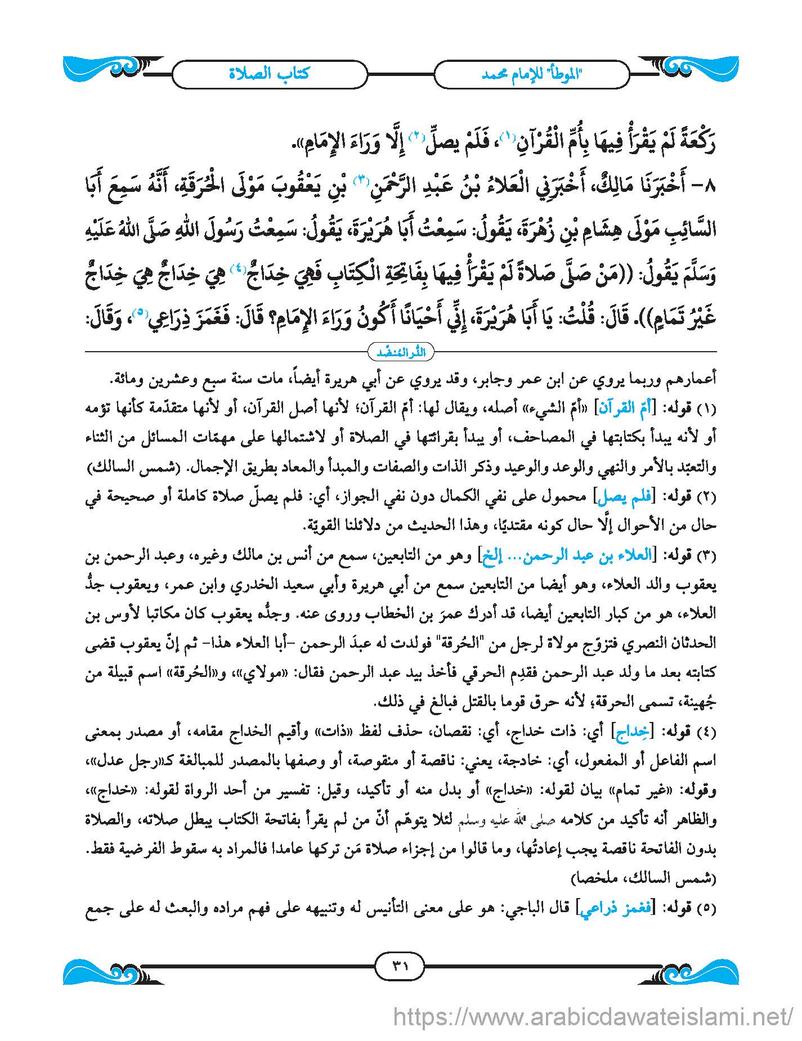 "الموطأ" للإمام محمد
كتاب الصلاة
رَكْعَةً لَمْ يَقْرَأْ فِيهَا بِأُمِّ الْقُرْآنِ(١)، فَلَمْ يصلِّ(٢) إِلَّا وَرَاءَ الإِمَامِ».
٨- أَخْبَرَنَا مَالِكٌ، أَخْبَرَنِي الْعَلاءُ بْنُ عَبْدِ الرَّحْمَنِ(٣) بْنِ يَعْقُوبَ مَوْلَى الْحُرَقَةِ، أَنَّهُ سَمِعَ أَبَا
السَّائِبِ مَوْلَى هِشَامِ بْنِ زُهْرَةَ، يَقُولُ: سَمِعْتُ أَبَا هُرَيْرَةَ، يَقُولُ: سَمِعْتُ رَسُولَ اللهِ صَلَّى اللهُ عَلَيْهِ
وَسَلَّمَ يَقُولُ: ((مَنْ صَلَّى صَلاةً لَمْ يَقْرَأْ فِيهَا بِفَاتِحَةِ الْكِتَابِ فَهِيَ خِدَاجٌ(٤) هِيَ خِدَاجٌ هِيَ خِدَاجٌ
غَيْرُ تَمَامٍ)). قَالَ: قُلْتُ: يَا أَبَا هُرَيْرَةَ، إِنِّي أَحْيَانًا أَكُونُ وَرَاءَ الإِمَامِ؟ قَالَ: فَغَمَزَ ذِرَاعِي(٥)، وَقَالَ:
الدُّر المُنضَّد
أعمارهم وربما يروي عن ابن عمر وجابر، وقد يروي عن أبي هريرة أيضاً، مات سنة سبع وعشرين ومائة.
(١) قوله: [أمّ القرآن] «أمّ الشيء» أصله، ويقال لها: أمّ القرآن؛ لأنها أصل القرآن، أو لأنها متقدّمة كأنها تؤمه
أو لأنه يبدأ بكتابتها في المصاحف، أو يبدأ بقرائتها في الصلاة أو لاشتمالها على مهمّات المسائل من الثناء
والتعبّد بالأمر والنهي والوعد والوعيد وذكر الذات والصفات والمبدأ والمعاد بطريق الإجمال. (شمس السالك)
(٢) قوله: [فلم يصل] محمول على نفي الكمال دون نفي الجواز، أي: فلم يصلّ صلاة كاملة أو صحيحة في
حال من الأحوال إلَّا حال كونه مقتديًا، وهذا الحديث من دلائلنا القويّة.
(٣) قوله: [العلاء بن عبد الرحمن... إلخ] وهو من التابعين، سمع من أنس بن مالك وغيره، وعبد الرحمن بن
يعقوب والد العلاء، وهو أيضا من التابعين سمع من أبي هريرة وأبي سعيد الخدري وابن عمر، ويعقوب جدُّ
العلاء، هو من كبار التابعين أيضا، قد أدرك عمرَ بن الخطاب وروى عنه. وجدُّه يعقوب كان مكاتبا لأوس بن
الحدثان النصري فتزوّج مولاة لرجل من "الحُرقة" فولدت له عبدَ الرحمن -أبا العلاء هذا- ثم إنّ يعقوب قضى
كتابته بعد ما ولد عبد الرحمن فقدِم الحرقي فأخذ بيد عبد الرحمن فقال: «مولاي»، و«الحُرقة» اسم قبيلة من
جُهينة، تسمى الحرقة؛ لأنه حرق قوما بالقتل فبالغ في ذلك.
(٤) قوله: [خِداج] أي: ذات خداج، أي: نقصان، حذف لفظ «ذات» وأقيم الخداج مقامه، أو مصدر بمعنى
اسم الفاعل أو المفعول، أي: خادجة، يعني: ناقصة أو منقوصة، أو وصفها بالمصدر للمبالغة كـ«رجل عدل»،
وقوله: «غير تمام» بيان لقوله: «خداج» أو بدل منه أو تأكيد، وقيل: تفسير من أحد الرواة لقوله: «خداج»،
والظاهر أنه تأكيد من كلامه صلى الله عليه وسلم لئلا يتوهّم أنّ من لم يقرأ بفاتحة الكتاب يبطل صلاته، والصلاة
بدون الفاتحة ناقصة يجب إعادتُها، وما قالوا من إجزاء صلاة مَن تركها عامدا فالمراد به سقوط الفرضية فقط.
(شمس السالك، ملخصا)
(٥) قوله: [فغمز ذراعي] قال الباجي: هو على معنى التأنيس له وتنبيهه على فهم مراده والبعث له على جمع
٣١
https://www.arabicdawateislami.net/